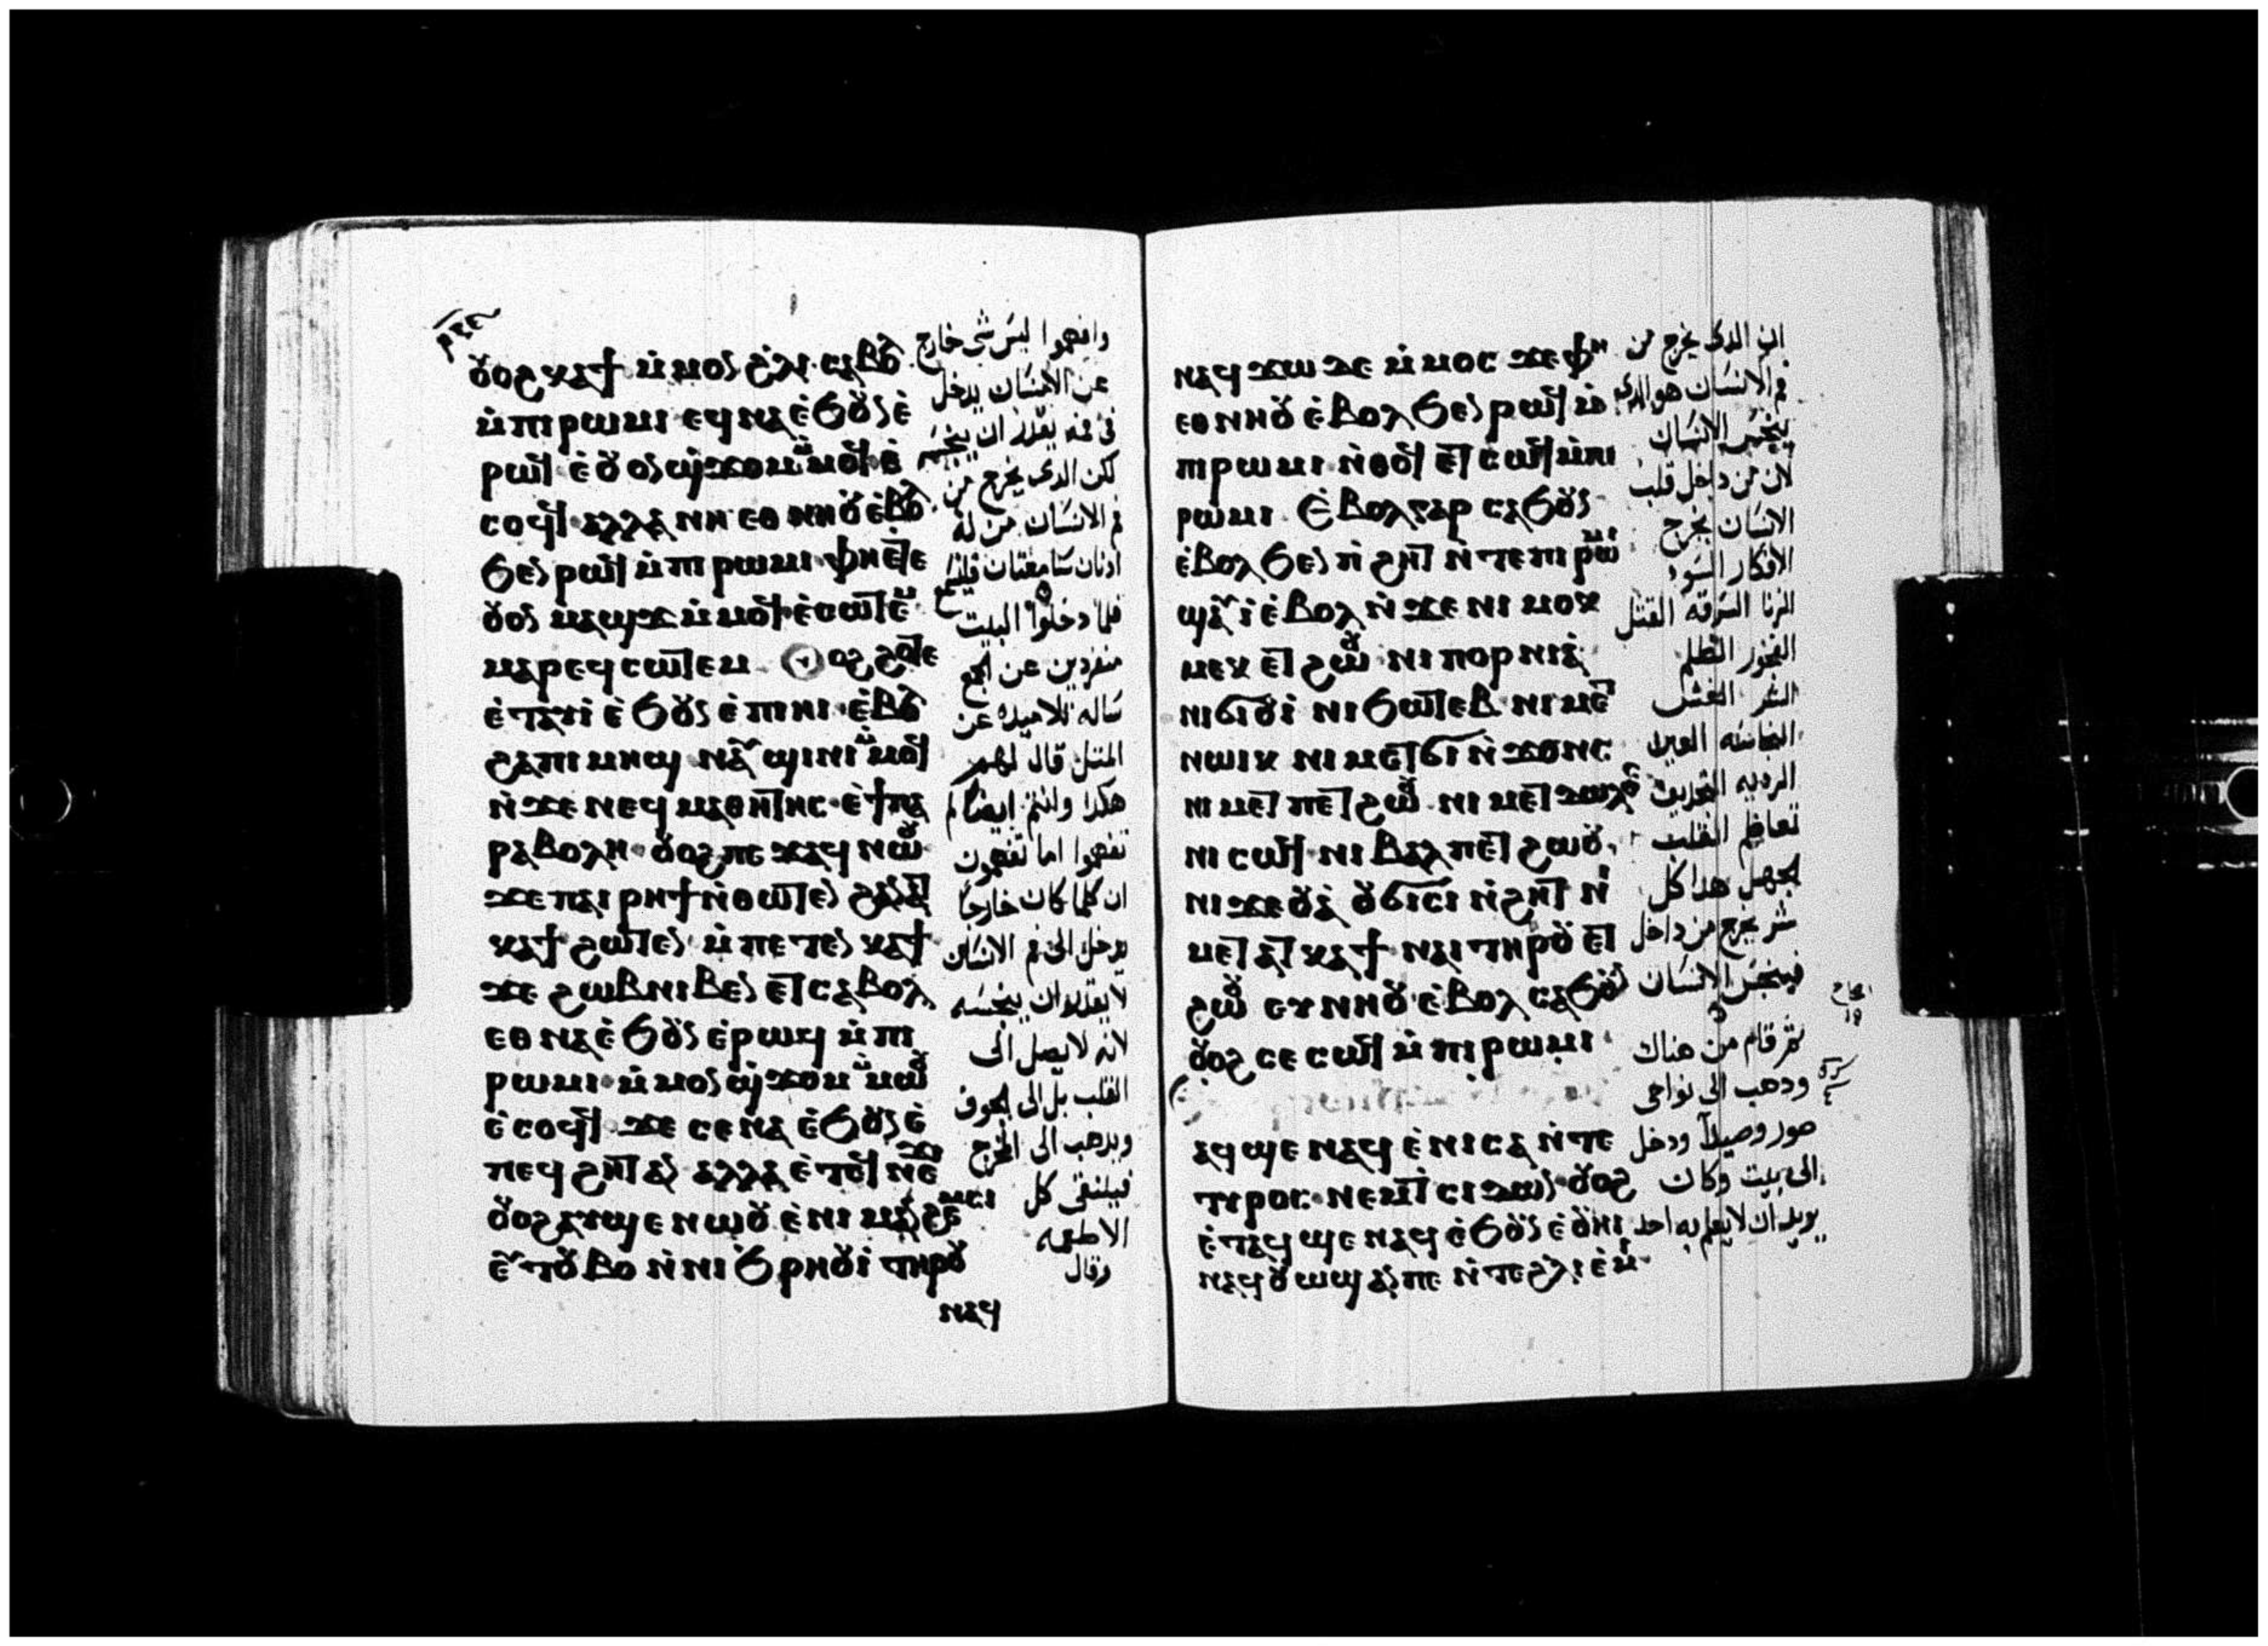 ⲣⲝⲉ
ⲟⲩⲟϩ ⲕⲁϯ ⲙ̀ⲙⲟⲛ ϩ̀ⲗⲓ ⲥⲁⲃⲟⲗ
ⲙ̀ⲡⲓⲣⲱⲙⲓ ⲉϥⲛⲁ ⲉ̀ϧⲟⲩⲛ ⲉ̀
ⲣⲱϥ ⲉ̀ ⲟⲩⲟⲛ ϣ̀ϫⲟⲙ ⲙ̀ⲙⲟϥ ⲉ̀
ⲥⲟϥϥ ⲁⲗⲗⲁ ⲛⲏ ⲉⲑⲛⲏⲟⲩ ⲉ̀ⲃⲟⲗ
ϧⲉⲛ ⲣⲱϥ ⲙ̀ⲡⲓⲣⲱⲙⲓ ⲫⲏⲉⲧⲉ
ⲟⲩⲟⲛ ⲙⲁϣϫ ⲙ̀ⲙⲟϥ ⲉ̀ⲥⲱⲧⲉⲙ
ⲙⲁⲣⲉϥⲥⲱⲧⲉⲙ ⲟⲩⲟϩ ϩⲟⲧⲉ
ⲉ̀ⲧⲁⲩⲓ̀ ⲉ̀ϧⲟⲩⲛ ⲉ̀ⲡⲓⲏⲓ ⲉ̀ⲃⲟⲗ
ϩⲁⲡⲓⲙⲏϣ ⲛⲁⲩϣⲓⲛⲓ ⲙ̀ⲙⲟϥ
ⲛ̀ϫⲉ ⲛⲉϥⲙⲁⲑⲏⲧⲏⲥ ⲉ̀ϯⲡⲁ
ⲣⲁⲃⲟⲗⲏ ⲟⲩⲟϩ ⲡⲉϫⲁϥ ⲛⲱⲟⲩ
ϫⲉ ⲡⲁⲓⲣⲏϯ ⲛ̀ⲑⲱⲧⲉⲛ ϩⲁⲛⲁⲧ
ⲕⲁϯ ϩⲱⲧⲉⲛ ⲙ̀ⲡⲉⲧⲉⲛⲕⲁϯ
ϫⲉ ϩⲱⲃ ⲛⲓⲃⲉⲛ ⲉⲧⲥⲁⲃⲟⲗ
ⲉⲑⲛⲁ ⲉ̀ϧⲟⲩⲛ ⲉ̀ⲣⲱϥ ⲙ̀ⲡⲓ
ⲣⲱⲙⲓ ⲙ̀ⲙⲟⲛ ϣ̀ϫⲟⲙ ⲙ̀ⲙⲱⲟⲩ
ⲉ̀ⲥⲟϥϥ ϫⲉ ⲥⲉⲛⲁ ⲉ̀ϧⲟⲩⲛ ⲉ̀
ⲡⲉϥϩⲏⲧ ⲁⲛ ⲁⲗⲗⲁ ⲉ̀ⲧⲉϥⲛⲉϫⲓ
ⲟⲩⲟϩ ⲁⲩϣⲉ ⲛⲱⲟⲩ ⲉ̀ⲛⲓⲙⲁⲛϩⲉⲙⲥⲓ
ⲉⲩⲧⲟⲩⲃⲟ ⲛ̀ⲛⲓϧⲣⲏⲟⲩⲓ̀ ⲧⲏⲣⲟⲩ
ⲛⲁϥ
وافهموا ليس شى خارج
عن الانسان يدخل
فى فمه يقدر ان ينجسه
لكن الدى يخرج من
فم الانسان من له
ادنان سامعتان فليسمع
فلما دخلوا البيت
منفردين عن الجمع
ساله تلاميده عن
المتل قال لهم
هكدا وانتم ايضا لم
تفهموا اما تفهمون
ان كلما كان خارجا
يدخل الى فم الانسان
لا يقدر ان ينجسه
لانه لا يصل الى
القلب بل الى الجوف
ويدهب الى المخرج
فيلنقى كل
الاطعمه
وقال
ⲛⲁϥϫⲱ ϫⲉ ⲙ̀ⲙⲟⲥ ϫⲉ ⲫⲏ
ⲉⲑⲛⲏⲟⲩ ⲉ̀ⲃⲟⲗ ϧⲉⲛ ⲣⲱϥ ⲙ̀
ⲡⲓⲣⲱⲙⲓ ⲛ̀ⲑⲟϥ ⲉⲧⲥⲱϥ ⲙ̀ⲡⲓ
ⲣⲱⲙⲓ ⲉ̀ⲃⲟⲗ ⲅⲁⲣ ⲥⲁϧⲟⲩⲛ
ⲉ̀ⲃⲟⲗ ϧⲉⲛ ⲡ̀ϩⲏⲧ ⲛ̀ⲧⲉ ⲡⲓⲣⲱⲙⲓ
ϣⲁⲩⲓ̀ ⲉ̀ⲃⲟⲗ ⲛ̀ϫⲉ ⲛⲓⲙⲟⲕ
ⲙⲉⲕ ⲉⲧϩⲱⲟⲩ ⲛⲓⲡⲟⲣⲛⲓⲁ̀
ⲛⲓϭⲓⲟⲩⲓ̀ ⲛⲓϧⲱⲧⲉⲃ ⲛⲓⲙⲉⲧ
ⲛⲱⲓⲕ ⲛⲓⲙⲉⲧϭⲓⲛ̀ϫⲟⲛⲥ
ⲛⲓⲙⲉⲧⲡⲉⲧϩⲱⲟⲩ ⲛⲓⲙⲉⲧϫⲱⲗϩ
ⲛⲓⲥⲱϥ ⲛⲓⲃⲁⲗ ⲡⲉⲧϩⲱⲟⲩ
ⲛⲓϫⲉⲟⲩⲁ̀ ⲟⲩϭⲓⲥⲓ ⲛ̀ϩⲏⲧ ⲛⲓ
ⲙⲉⲧⲁⲧⲕⲁϯ ⲛⲁⲓ ⲧⲏⲣⲟⲩ ⲉⲧ
ϩⲱⲟⲩ ⲉⲩⲛⲏⲟⲩ ⲉ̀ⲃⲟⲗ ⲥⲁϧⲟⲩⲛ
ⲟⲩⲟϩ ⲥⲉⲥⲱϥ ⲙ̀ⲡⲓⲣⲱⲙⲓ
ⲁϥϣⲉ ⲛⲁϥ ⲉ̀ⲛⲓⲥⲁ ⲛ̀ⲧⲉ
ⲧⲩⲣⲟⲥ ⲛⲉⲙ ⲧⲥⲓⲇⲱⲛ ⲟⲩⲟϩ
ⲉ̀ⲧⲁϥϣⲉ ⲛⲁϥ ⲉ̀ϧⲟⲩⲛ ⲉ̀ⲟⲩⲏⲓ
ⲛⲁϥⲟⲩⲱϣ ⲁⲛ ⲡⲉ ⲛ̀ⲧⲉ ϩⲗⲓ ⲉ̀ⲙⲓ
ان الدى يخرج من
فم الانسان هو الدى
ينجس الانسان
لان من داخل قلب
الانسان يخرج
الافكار السود
الزنا السرقه القتل
الفجور الظلم
الشر الغش
العين
الرديه التجديف
تعاظم القلب
الجهل هدا كل
شر يخرج من داخل
فينجس الانسان
ثم قام من هناك
ودهب الى نواحى
صور وصيدا ودخل
الى بيت وكان
يريد ان لا يعلم به احد